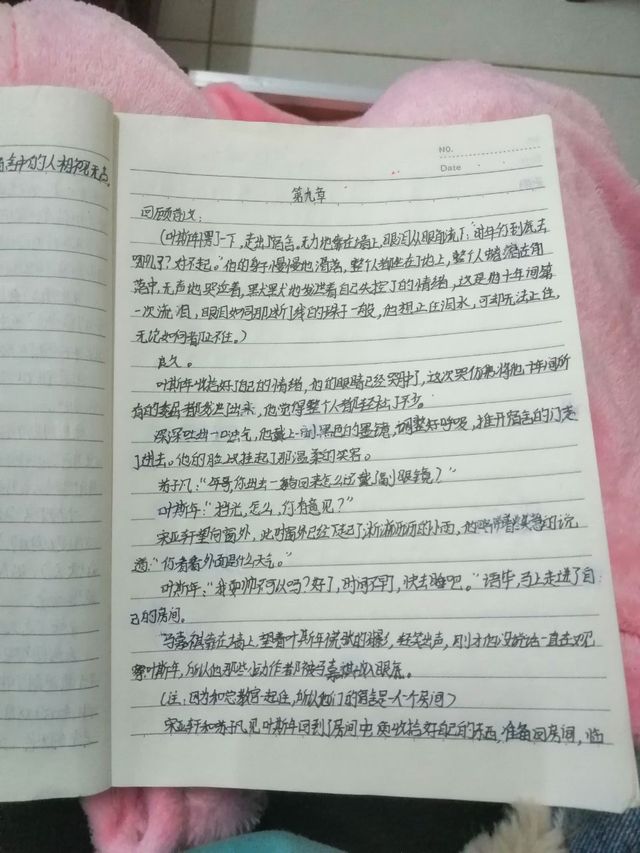 舍中的人相视无点。
NO.
Date
第九章
回顾前文:
(叶斯年愣了一下,走出了宿舍。无力地靠在墙上,眼泪从眼角流了:"谢年约到底去
哪儿了?对不起。"他的身子慢慢地滑落,整个人都坐在了地上,整个人蜷缩在角
落中,无声地哭泣着,默默地发泄着自己失控了的情绪,这是他十年间第
一次流泪,眼泪如同那断了线的珠子一般,他想止住泪水,可却无法止住,
无论如何都止不住。)
良久。
叶斯年收拾好了自己的情绪,他的眼睛已经哭肿了,这次哭仿佛将他十年间所
有的委屈都发泄出来,他觉得整个人都轻松了不少。
深深吐出一口浊气,他戴上一副黑色的墨镜,调整好呼吸,推开宿舍的门走
了进去。他的脸上挂起了那温柔的笑容。
苏子凡:"年哥,你出去一趟回来怎么还戴了副眼镜?"
叶斯年:"挡光,怎么,你有意见?"
宋亚轩望向窗外,此时窗外已经下起了淅淅沥沥的小雨,他 的说
道:"你看看外面是什么天气。"
叶斯年:"我耍帅不可以吗?好了,时间不早了,快去睡吧。"语毕,马上走进了自
己的房间。
马嘉祺靠在墙上,望着叶斯年慌张的背影,轻笑出声,刚才他没说话一直在观
察叶斯年,所以他那些小动作都被马嘉祺收入眼底。
(注:因为和总教官一起住,所以他们的宿舍是一人一个房间)
宋亚轩和苏子凡见叶斯年回到了房间中,便收拾好自己的东西,准备回房间,临